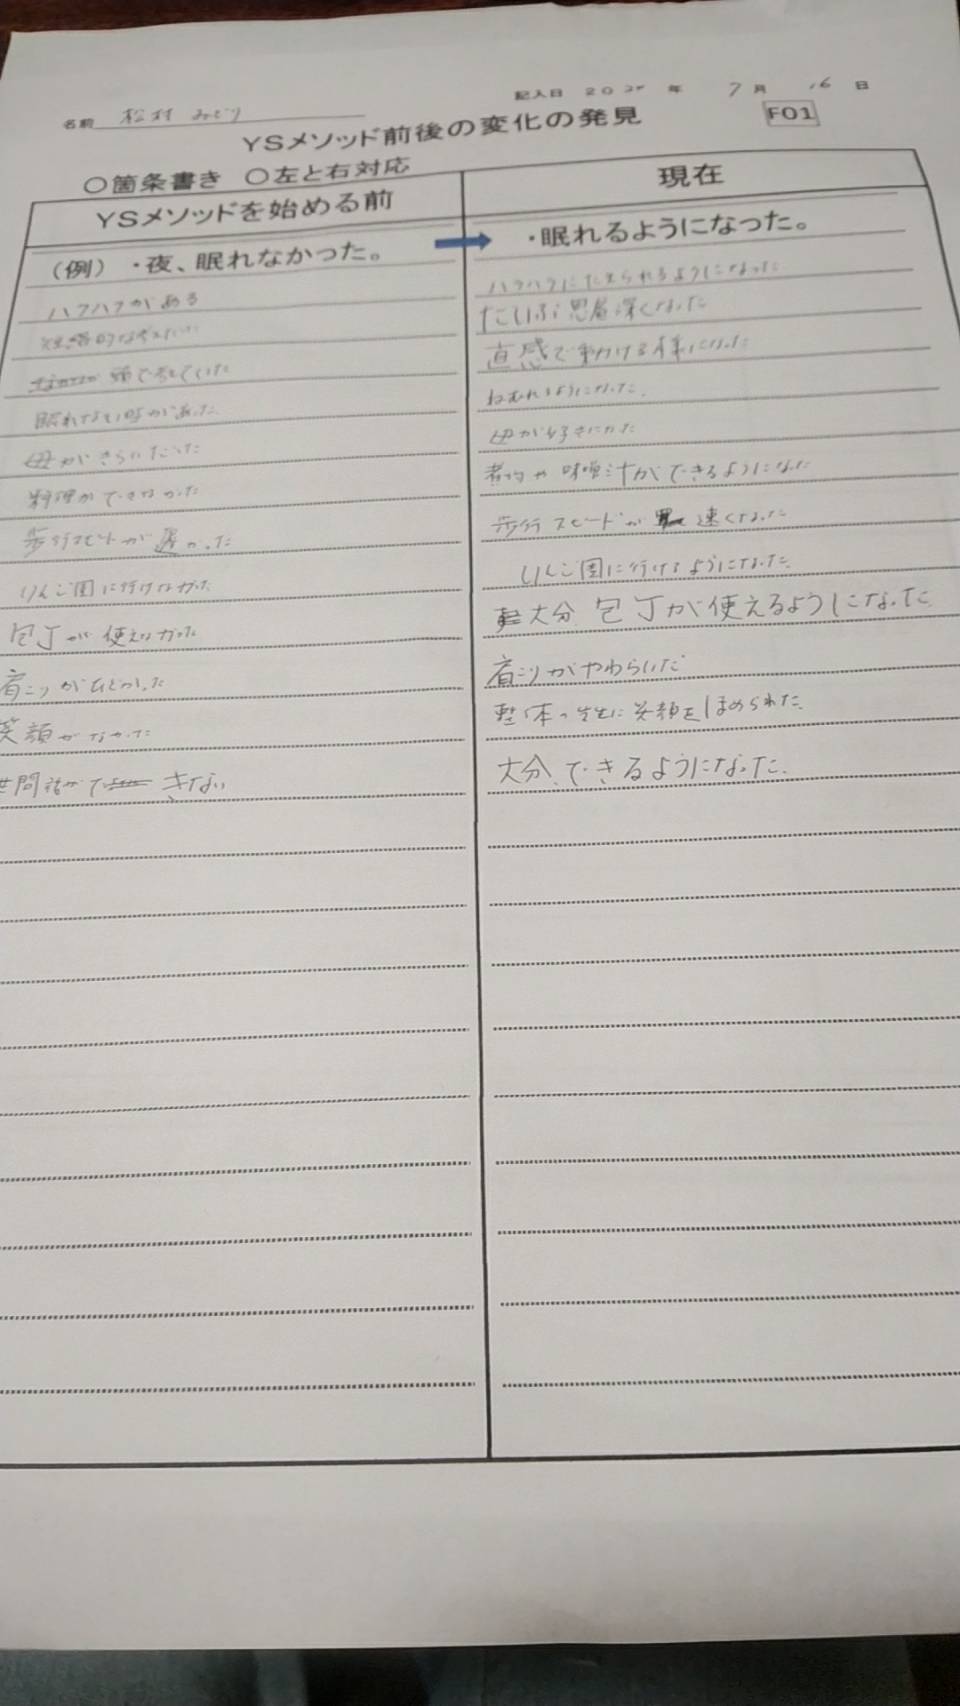 記入日 20 年 7月 16日
名前 松村 みどり
YSメソッド前後の変化の発見 F01
○箇条書き ○左と右対応
YSメソッドを始める前 現在
(例) ・夜、眠れなかった。 ・眠れるようになった。
ハラハラがある ハラハラにたえられるようになった
短絡的な考え だいぶ思慮深くなった
頭で考えていた 直感で動ける様になった
眠れない時があった ねむれるようになった.
母がきらいだった 母が好きになった
料理ができなかった 煮物や味噌汁ができるようになった
歩行スピードが遅かった 歩行スピードが 速くなった
りんご園に行けなかった りんご園に行けるようになった.
包丁が使えなかった 大分、包丁が使えるようになった
肩こりがひどかった 肩こりがやわらいだ
笑顔がなかった 整体の先生に笑顔をほめられた.
世間話ができない 大分、できるようになった.